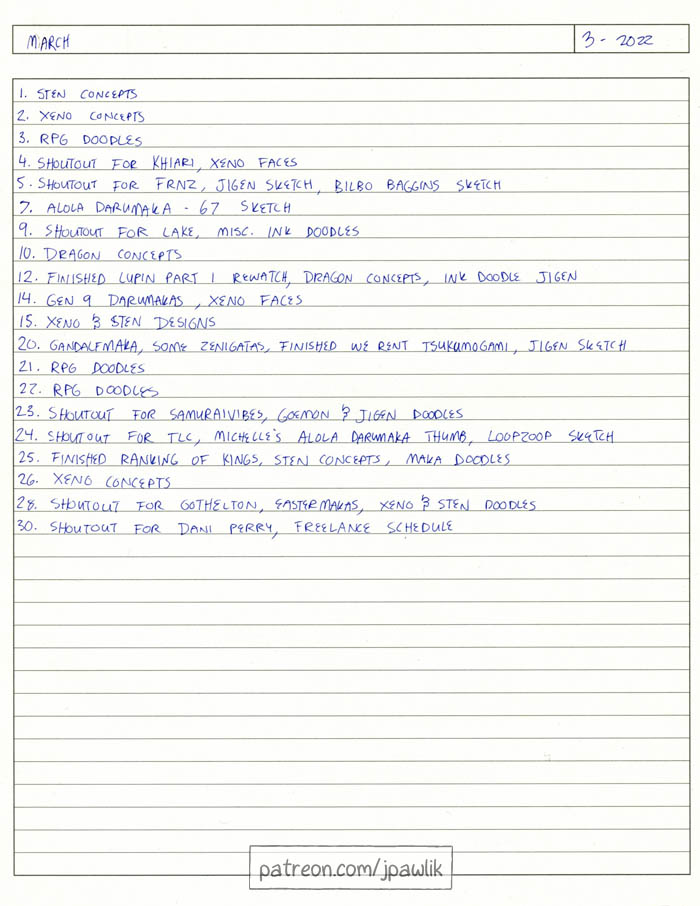 MARCH
3 - 2022
1. STEN CONCEPTS
2. XENO CONCEPTS
3. RPG DOODLES
4. SHOUTOUT FOR KHIARI, XENO FACES
5. SHOUTOUT FOR FRNZ, JIGEN SKETCH, BILBO BAGGINS SKETCH
7. ALOLA DARUMAKA - 67 SKETCH
9. SHOUTOUT FOR LAKE, MISC. INK DOODLES
10. DRAGON CONCEPTS
12. FINISHED LUPIN PART 1 REWATCH, DRAGON CONCEPTS, INK DOODLE JIGEN
14. GEN 9 DARUMAKAS, XENO FACES
15. XENO & STEN DESIGNS
20. GANDALFMAKA, SOME ZENIGATAS, FINISHED WE RENT TSUKUMOGAMI, JIGEN SKETCH
21. RPG DOODLES
22. RPG DOODLES
23. SHOUTOUT FOR SAMURAIVIBES, GOEMON & JIGEN DOODLES
24. SHOUTOUT FOR TLC, MICHELLE'S ALOLA DARUMAKA THUMB, LOOPZOOP SKETCH
25. FINISHED RANKING OF KINGS, STEN CONCEPTS, MAKA DOODLES
26. XENO CONCEPTS
28. SHOUTOUT FOR GOTHELTON, EASTERMAKAS, XENO & STEN DOODLES
30. SHOUTOUT FOR DANI PERRY, FREELANCE SCHEDULE
patreon.com/jpawlik